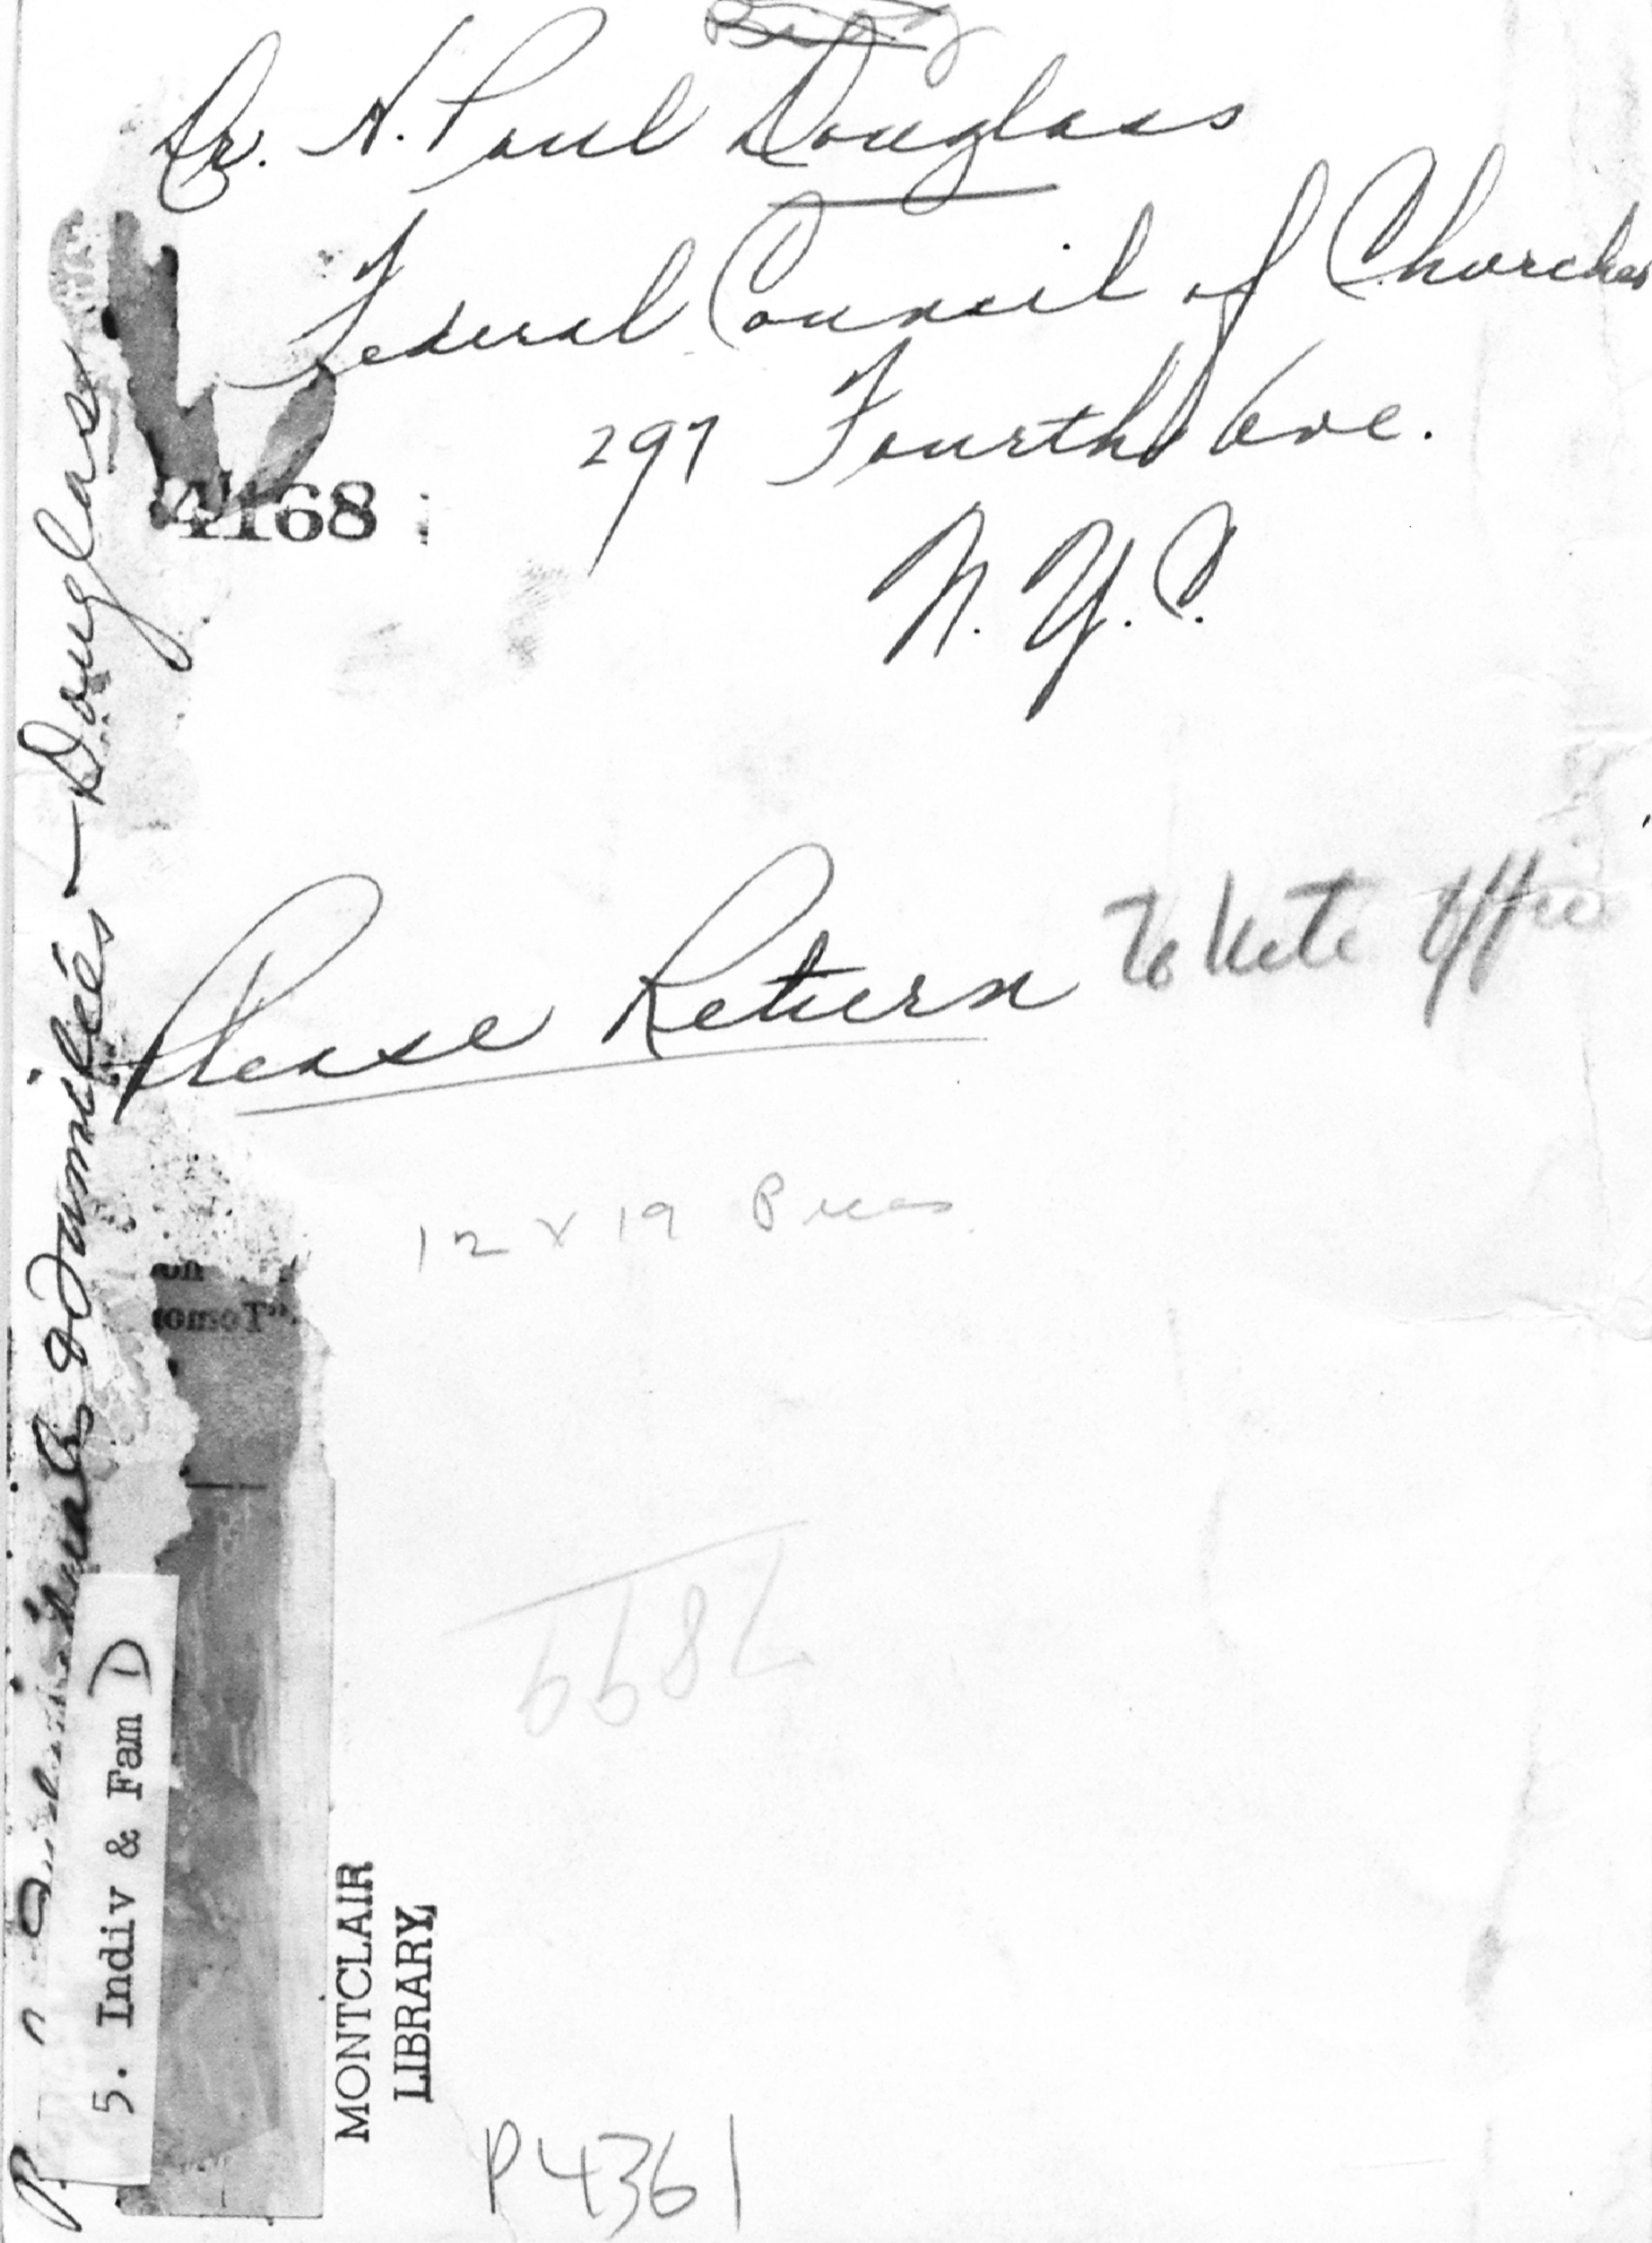 Dr. H. Paul Douglass
Federal Council of Churches
297 Fourth Ave.
N.Y.C.
4168
Please Return To
12 x 19 Picas
7899
Individuals & Families — Douglass
5. Indiv & Fam D
MONTCLAIR
LIBRARY
P4361